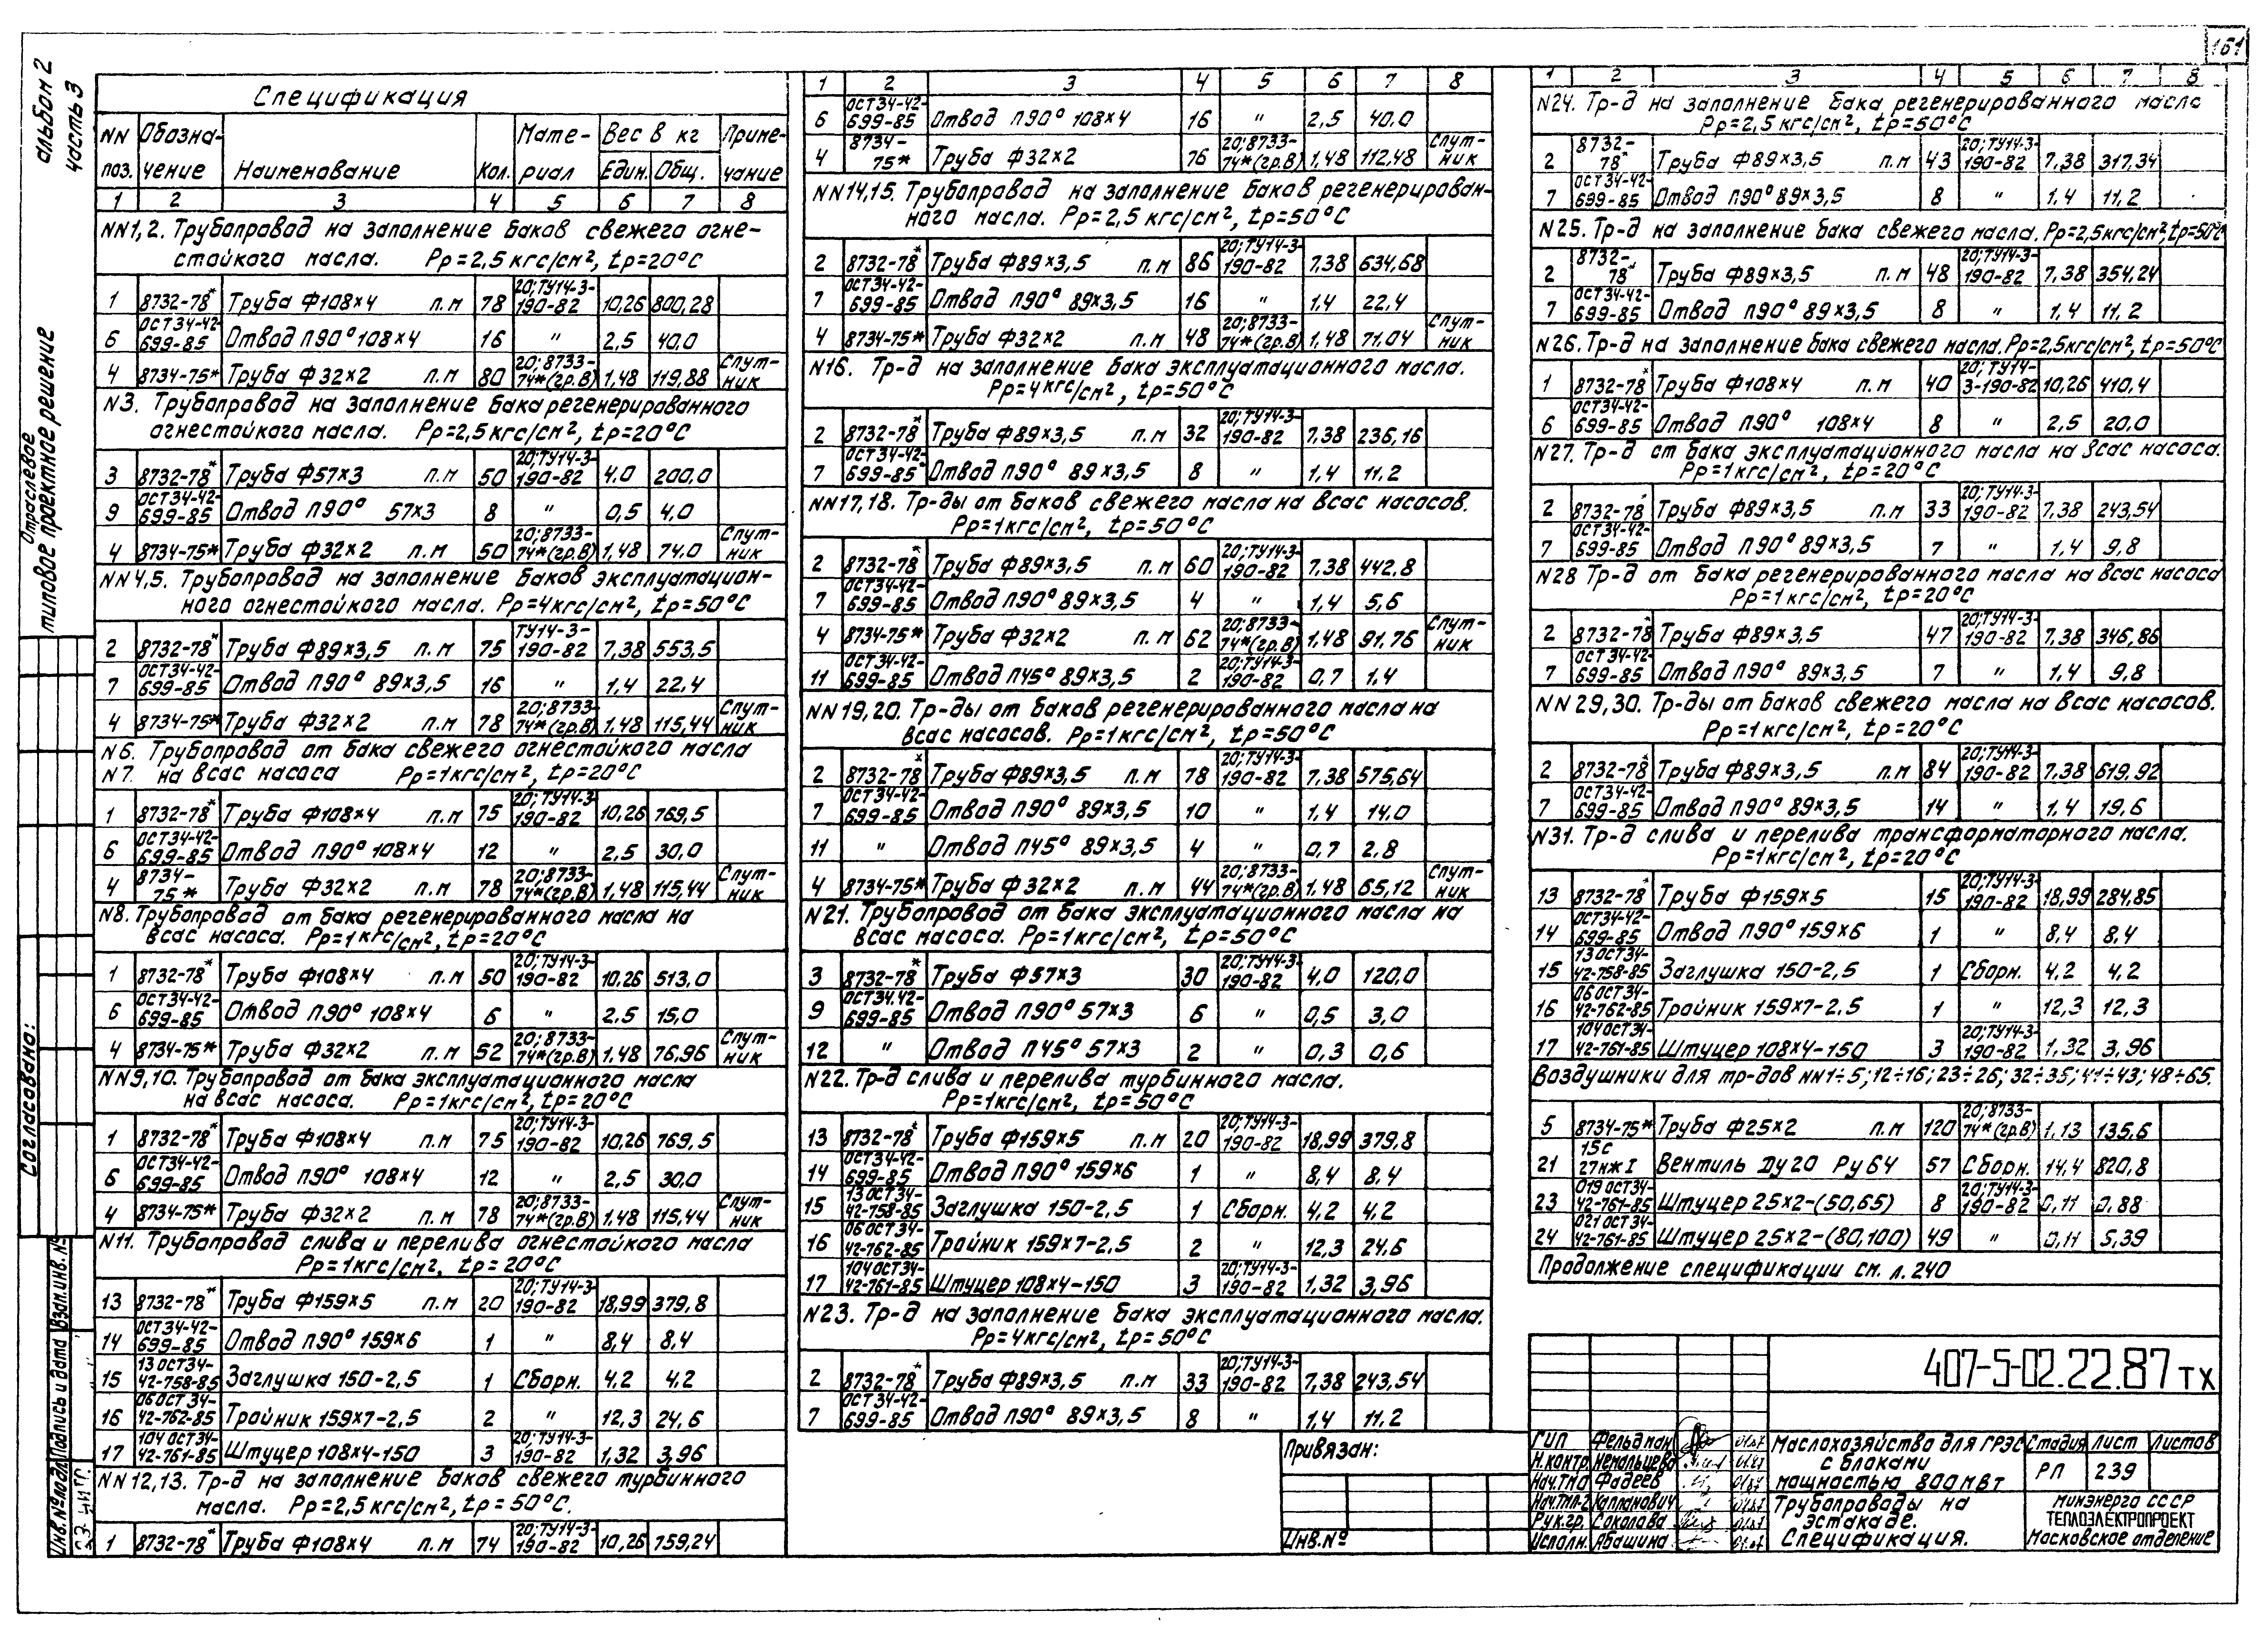 161
альбом 2
часть 3
Отраслевое
типовое проектное решение
Согласовано:
Взам.инв.№
Подпись и дата
Инв.№подл.
Спецификация
NN поз. | Обозначение | Наименование | Кол. | Материал | Вес в кг Един. | Общ. | Примечание
1 2 3 4 5 6 7 8
NN1,2. Трубопровод на заполнение баков свежего огне-
стойкого масла. Рр=2,5кгс/см², tр=20°С
1 8732-78* Труба Ф108×4 п.м 78 20;ТУ14-3-190-82 10,26 800,28
6 ОСТ34-42-699-85 Отвод П90° 108×4 16 " 2,5 40,0
4 8734-75* Труба Ф32×2 п.м 80 20;8733-74*(гр.В) 1,48 119,88 Спутник
N3. Трубопровод на заполнение бака регенерированного
огнестойкого масла. Рр=2,5кгс/см², tр=20°С
3 8732-78* Труба Ф57×3 п.м 50 20;ТУ14-3-190-82 4,0 200,0
9 ОСТ34-42-699-85 Отвод П90° 57×3 8 " 0,5 4,0
4 8734-75* Труба Ф32×2 п.м 50 20;8733-74*(гр.В) 1,48 74,0 Спутник
NN4,5. Трубопровод на заполнение баков эксплуатацион-
ного огнестойкого масла. Рр=4кгс/см², tр=50°С
2 8732-78* Труба Ф89×3,5 п.м 75 ТУ14-3-190-82 7,38 553,5
7 ОСТ34-42-699-85 Отвод П90° 89×3,5 16 " 1,4 22,4
4 8734-75* Труба Ф32×2 п.м 78 20;8733-74*(гр.В) 1,48 115,44 Спутник
N6. Трубопровод от бака свежего огнестойкого масла
N7. на всас насоса Рр=1кгс/см², tр=20°С
1 8732-78* Труба Ф108×4 п.м 75 20;ТУ14-3-190-82 10,26 769,5
6 ОСТ34-42-699-85 Отвод П90° 108×4 12 " 2,5 30,0
4 8734-75* Труба Ф32×2 п.м 78 20;8733-74*(гр.В) 1,48 115,44 Спутник
N8. Трубопровод от бака регенерированного масла на
всас насоса. Рр=1кгс/см², tр=20°С
1 8732-78* Труба Ф108×4 п.м 50 20;ТУ14-3-190-82 10,26 513,0
6 ОСТ34-42-699-85 Отвод П90° 108×4 6 " 2,5 15,0
4 8734-75* Труба Ф32×2 п.м 52 20;8733-74*(гр.В) 1,48 76,96 Спутник
NN9,10. Трубопровод от бака эксплуатационного масла
на всас насоса. Рр=1кгс/см², tр=20°С
1 8732-78* Труба Ф108×4 п.м 75 20;ТУ14-3-190-82 10,26 769,5
6 ОСТ34-42-699-85 Отвод П90° 108×4 12 " 2,5 30,0
4 8734-75* Труба Ф32×2 п.м 78 20;8733-74*(гр.В) 1,48 115,44 Спутник
N11. Трубопровод слива и перелива огнестойкого масла
Рр=1кгс/см², tр=20°С
13 8732-78* Труба Ф159×5 п.м 20 20;ТУ14-3-190-82 18,99 379,8
14 ОСТ34-42-699-85 Отвод П90° 159×6 1 " 8,4 8,4
15 13 ОСТ34-42-758-85 Заглушка 150-2,5 1 Сборн. 4,2 4,2
16 06 ОСТ34-42-762-85 Тройник 159×7-2,5 2 " 12,3 24,6
17 104 ОСТ34-42-761-85 Штуцер 108×4-150 3 20;ТУ14-3-190-82 1,32 3,96
NN12,13. Тр-д на заполнение баков свежего турбинного
масла. Рр=2,5кгс/см², tр=50°С.
1 8732-78* Труба Ф108×4 п.м 74 20;ТУ14-3-190-82 10,26 759,24
1 2 3 4 5 6 7 8
6 ОСТ34-42-699-85 Отвод П90° 108×4 16 " 2,5 40,0
4 8734-75* Труба Ф32×2 76 20;8733-74*(гр.В) 1,48 112,48 Спутник
NN14,15. Трубопровод на заполнение баков регенерирован-
ного масла. Рр=2,5кгс/см², tр=50°С
2 8732-78* Труба Ф89×3,5 п.м 86 20;ТУ14-3-190-82 7,38 634,68
7 ОСТ34-42-699-85 Отвод П90° 89×3,5 16 " 1,4 22,4
4 8734-75* Труба Ф32×2 п.м 48 20;8733-74*(гр.В) 1,48 71,04 Спутник
N16. Тр-д на заполнение бака эксплуатационного масла.
Рр=4кгс/см², tр=50°С
2 8732-78* Труба Ф89×3,5 п.м 32 20;ТУ14-3-190-82 7,38 236,16
7 ОСТ34-42-699-85 Отвод П90° 89×3,5 8 " 1,4 11,2
NN17,18. Тр-ды от баков свежего масла на всас насосов.
Рр=1кгс/см², tр=50°С
2 8732-78* Труба Ф89×3,5 п.м 60 20;ТУ14-3-190-82 7,38 442,8
7 ОСТ34-42-699-85 Отвод П90° 89×3,5 4 " 1,4 5,6
4 8734-75* Труба Ф32×2 п.м 62 20;8733-74*(гр.В) 1,48 91,76 Спутник
11 ОСТ34-42-699-85 Отвод П45° 89×3,5 2 20;ТУ14-3-190-82 0,7 1,4
NN19,20. Тр-ды от баков регенерированного масла на
всас насосов. Рр=1кгс/см², tр=50°С
2 8732-78* Труба Ф89×3,5 п.м 78 20;ТУ14-3-190-82 7,38 575,64
7 ОСТ34-42-699-85 Отвод П90° 89×3,5 10 " 1,4 14,0
11 " Отвод П45° 89×3,5 4 " 0,7 2,8
4 8734-75* Труба Ф32×2 п.м 44 20;8733-74*(гр.В) 1,48 65,12 Спутник
N21. Трубопровод от бака эксплуатационного масла на
всас насоса. Рр=1кгс/см², tр=50°С
3 8732-78* Труба Ф57×3 30 20;ТУ14-3-190-82 4,0 120,0
9 ОСТ34.42-699-85 Отвод П90° 57×3 6 " 0,5 3,0
12 " Отвод П45° 57×3 2 " 0,3 0,6
N22. Тр-д слива и перелива турбинного масла.
Рр=1кгс/см², tр=50°С
13 8732-78* Труба Ф159×5 п.м 20 20;ТУ14-3-190-82 18,99 379,8
14 ОСТ34-42-699-85 Отвод П90° 159×6 1 " 8,4 8,4
15 13 ОСТ34-42-758-85 Заглушка 150-2,5 1 Сборн. 4,2 4,2
16 06 ОСТ34-42-762-85 Тройник 159×7-2,5 2 " 12,3 24,6
17 104 ОСТ34-42-761-85 Штуцер 108×4-150 3 20;ТУ14-3-190-82 1,32 3,96
N23. Тр-д на заполнение бака эксплуатационного масла.
Рр=4кгс/см², tр=50°С
2 8732-78* Труба Ф89×3,5 п.м 33 20;ТУ14-3-190-82 7,38 243,54
7 ОСТ34-42-699-85 Отвод П90° 89×3,5 8 " 1,4 11,2
Привязан:
Инв.№
1 2 3 4 5 6 7 8
N24. Тр-д на заполнение бака регенерированного масла
Рр=2,5кгс/см², tр=50°С
2 8732-78* Труба Ф89×3,5 п.м 43 20;ТУ14-3-190-82 7,38 317,34
7 ОСТ34-42-699-85 Отвод П90° 89×3,5 8 " 1,4 11,2
N25. Тр-д на заполнение бака свежего масла. Рр=2,5кгс/см², tр=50°С
2 8732-78* Труба Ф89×3,5 п.м 48 20;ТУ14-3-190-82 7,38 354,24
7 ОСТ34-42-699-85 Отвод П90° 89×3,5 8 " 1,4 11,2
N26. Тр-д на заполнение бака свежего масла. Рр=2,5кгс/см², tр=50°С
1 8732-78* Труба Ф108×4 п.м 40 20;ТУ14-3-190-82 10,26 410,4
6 ОСТ34-42-699-85 Отвод П90° 108×4 8 " 2,5 20,0
N27. Тр-д от бака эксплуатационного масла на всас насоса.
Рр=1кгс/см², tр=20°С
2 8732-78* Труба Ф89×3,5 п.м 33 20;ТУ14-3-190-82 7,38 243,54
7 ОСТ34-42-699-85 Отвод П90° 89×3,5 7 " 1,4 9,8
N28 Тр-д от бака регенерированного масла на всас насоса
Рр=1кгс/см², tр=20°С
2 8732-78* Труба Ф89×3,5 47 20;ТУ14-3-190-82 7,38 346,86
7 ОСТ34-42-699-85 Отвод П90° 89×3,5 7 " 1,4 9,8
NN29,30. Тр-ды от баков свежего масла на всас насосов.
Рр=1кгс/см², tр=20°С
2 8732-78* Труба Ф89×3,5 п.м 84 20;ТУ14-3-190-82 7,38 619,92
7 ОСТ34-42-699-85 Отвод П90° 89×3,5 14 " 1,4 19,6
N31. Тр-д слива и перелива трансформаторного масла.
Рр=1кгс/см², tр=20°С
13 8732-78* Труба Ф159×5 15 20;ТУ14-3-190-82 18,99 284,85
14 ОСТ34-42-699-85 Отвод П90° 159×6 1 " 8,4 8,4
15 13 ОСТ34-42-758-85 Заглушка 150-2,5 1 Сборн. 4,2 4,2
16 06 ОСТ34-42-762-85 Тройник 159×7-2,5 1 " 12,3 12,3
17 104 ОСТ34-42-761-85 Штуцер 108×4-150 3 20;ТУ14-3-190-82 1,32 3,96
Воздушники для тр-дов NN1÷5; 12÷16; 23÷26; 32÷35; 41÷43; 48÷65.
5 8734-75* Труба Ф25×2 п.м 120 20;8733-74*(гр.В) 1,13 135,6
21 15с 27нж1 Вентиль Ду20 Ру64 57 Сборн. 14,4 820,8
23 019 ОСТ34-42-761-85 Штуцер 25×2-(50,65) 8 20;ТУ14-3-190-82 0,11 0,88
24 021 ОСТ34-42-761-85 Штуцер 25×2-(80,100) 49 " 0,11 5,39
Продолжение спецификации см. л. 240
407-5-02.22.87 ТХ
ГИП Фельдман 01.87
Н.контр. Немальцева 01.87
Нач.ТМО Фадеев 01.87
Нач.ТМЛ-2 Капланович 01.87
Рук.гр. Соколова 01.87
Исполн. Абашина 01.87
Маслохозяйство для ГРЭС
с блоками
мощностью 800МВт
Стадия Лист Листов
РП 239
Трубопроводы на
эстакаде.
Спецификация.
Минэнерго СССР
ТЕПЛОЭЛЕКТРОПРОЕКТ
Московское отделение